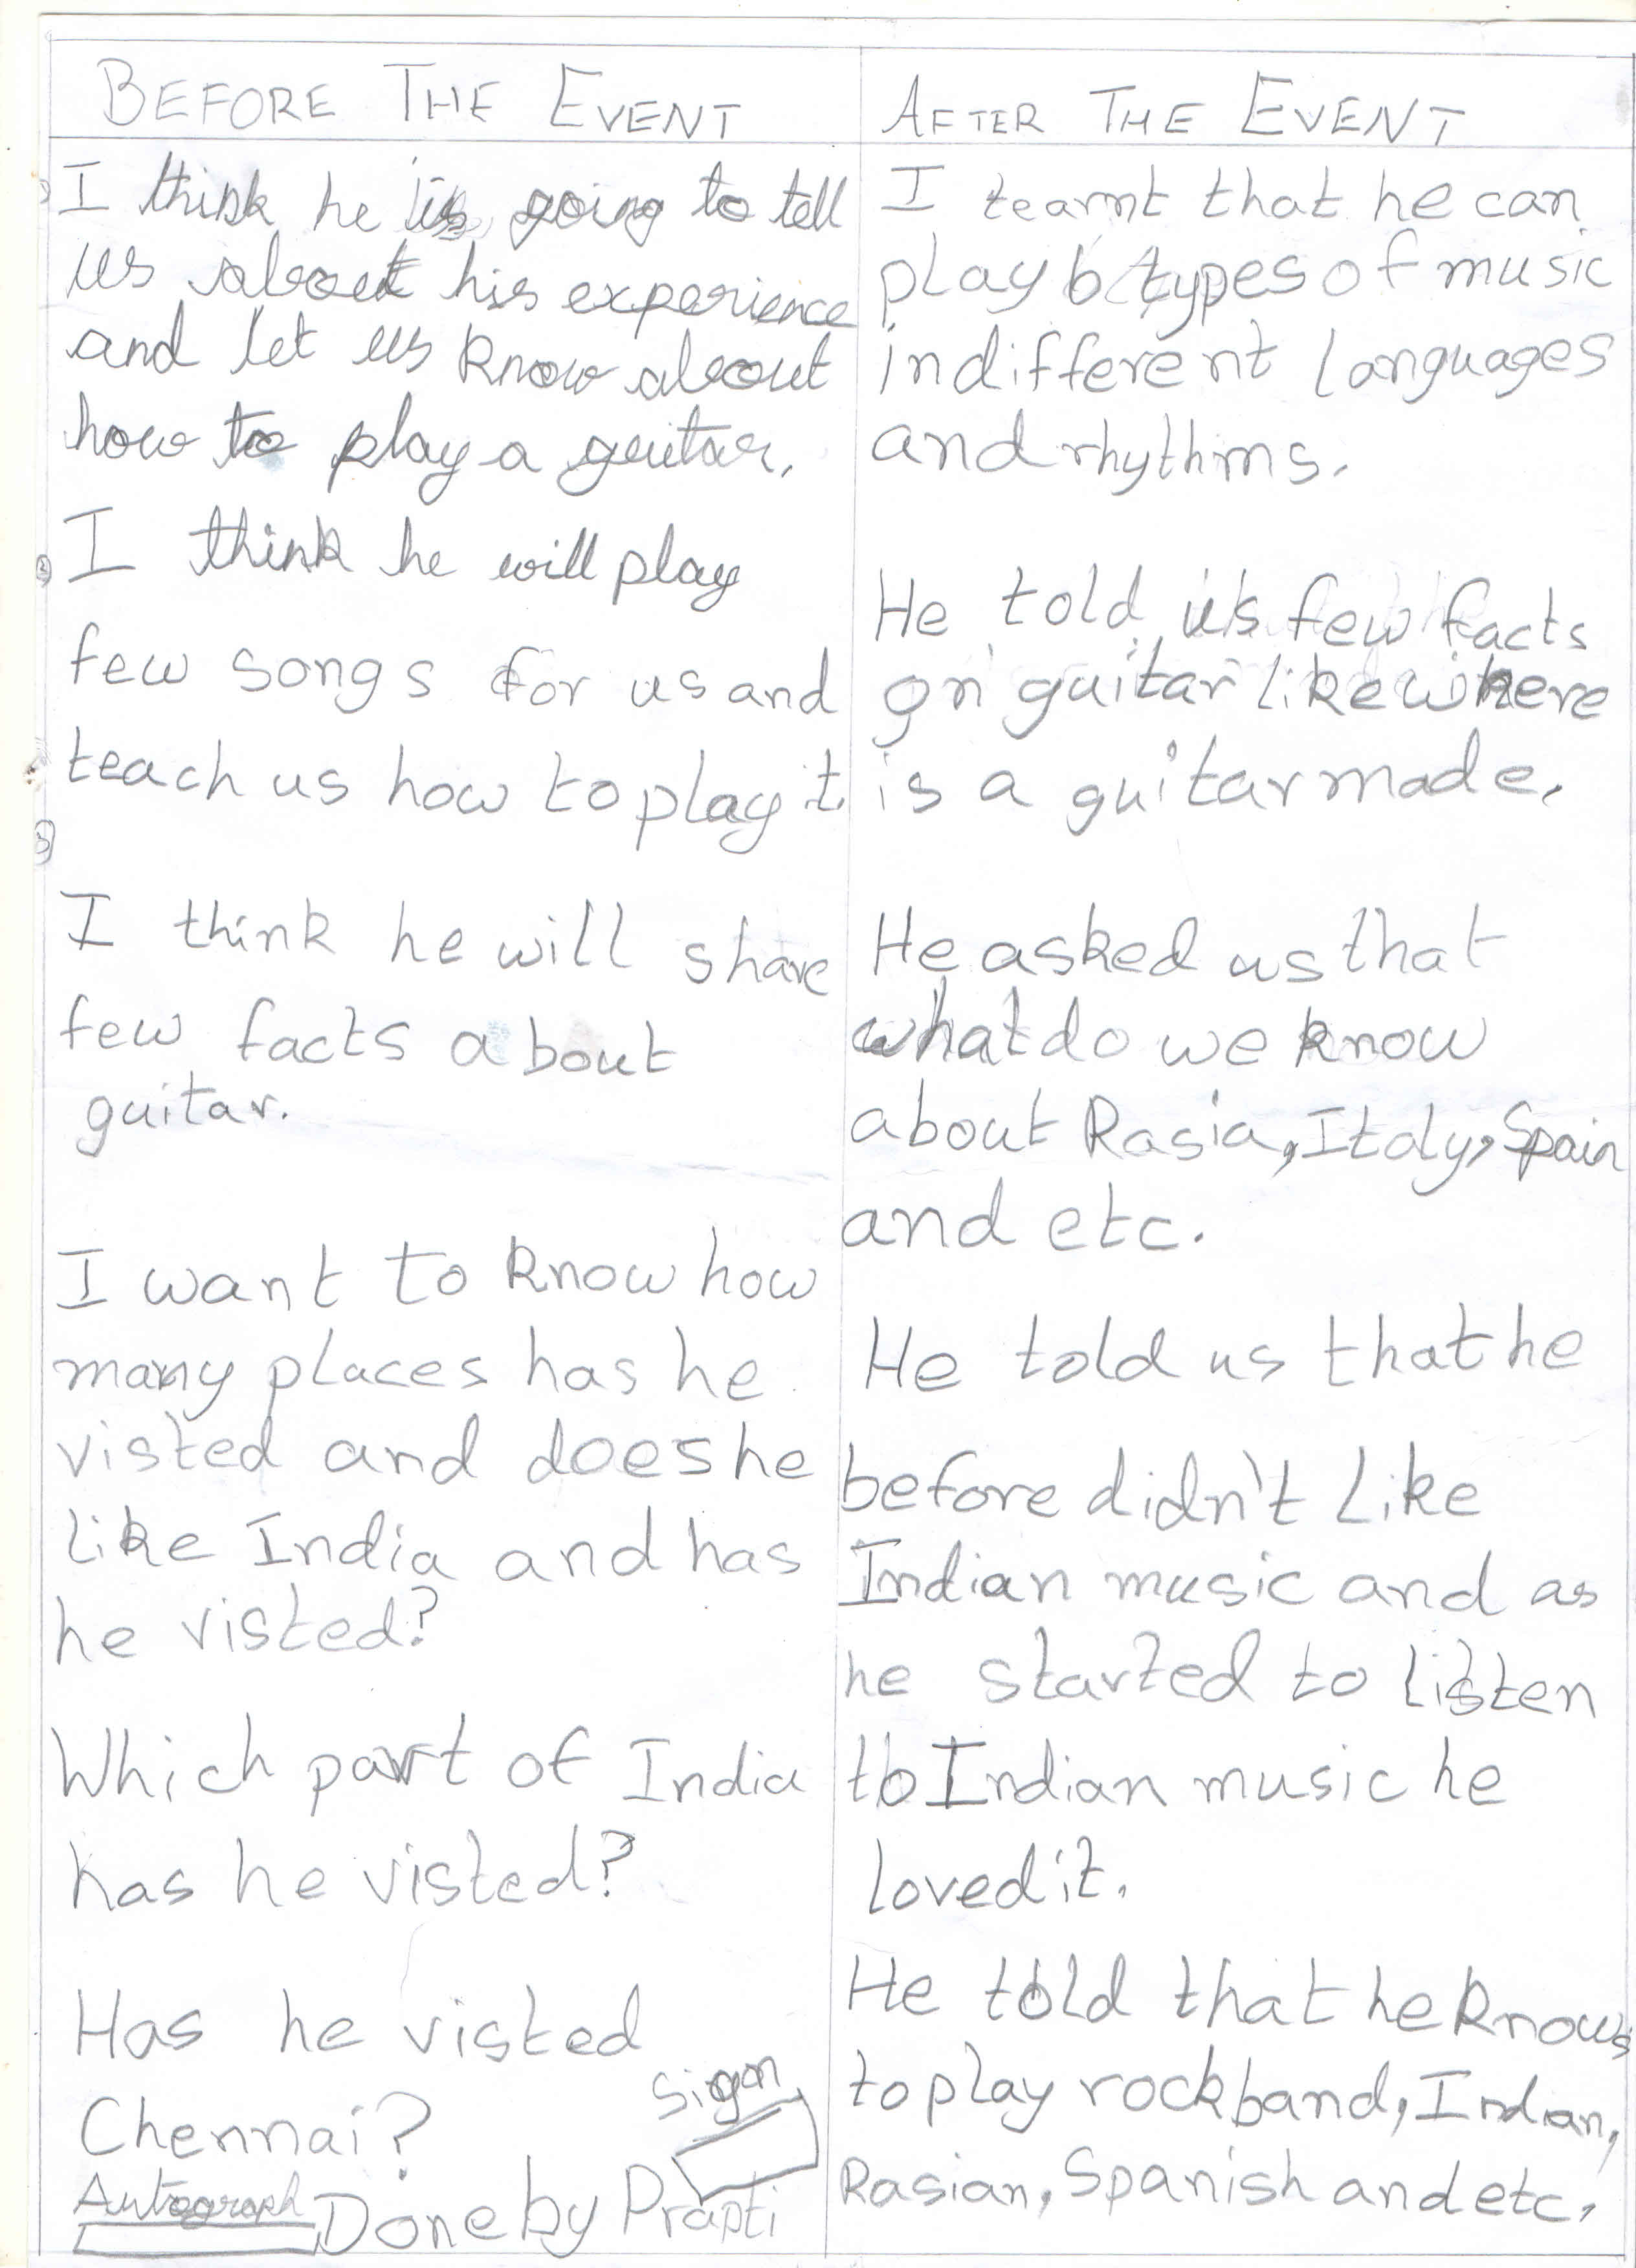 BEFORE THE EVENT
I think he is going to tell
us about his experience
and let us know about
how to play a guitar.
I think he will play
few songs for us and
teach us how to play it.
I think he will share
few facts about
guitar.
I want to know how
many places has he
visted and does he
like India and has
he visted?
Which part of India
has he visted?
Has he visted
Chennai?
Sign
Autograph
Done by Prapti
AFTER THE EVENT
I learnt that he can
play 6 types of music
in different languages
and rhythms.
He told us few facts
on guitar like where
is a guitar made.
He asked us that
what do we know
about Rasia, Italy, Spain
and etc.
He told us that he
before didn't like
Indian music and as
he started to listen
to Indian music he
loved it.
He told that he knows
to play rock band, Indian,
Rasian, Spanish and etc.